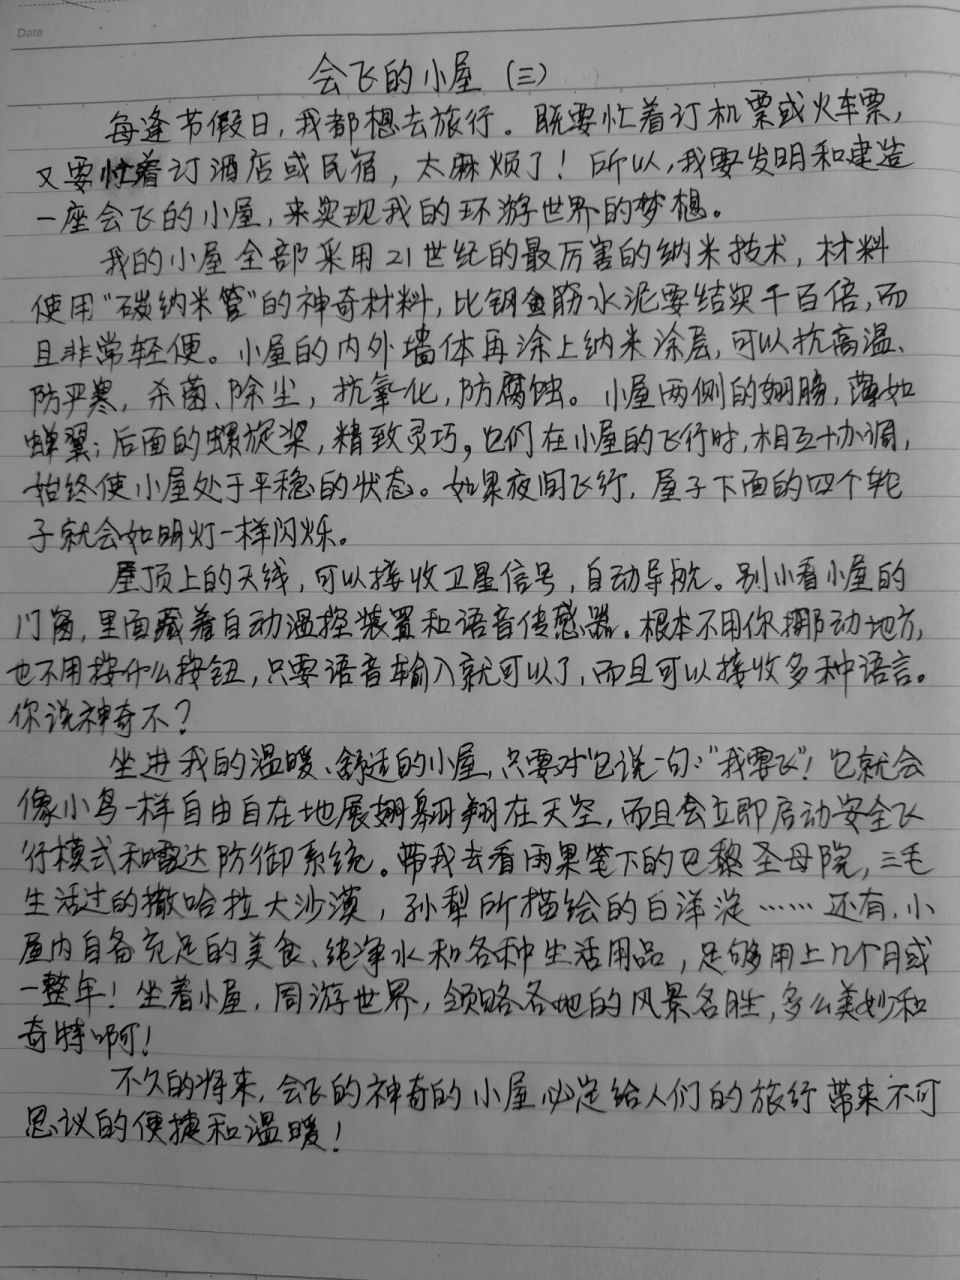 Date
会飞的小屋（三）
每逢节假日，我都想去旅行。既要忙着订机票或火车票，
又要忙着订酒店或民宿，太麻烦了！所以，我要发明和建造
一座会飞的小屋，来实现我的环游世界的梦想。
我的小屋全部采用21世纪的最厉害的纳米技术，材料
使用“碳纳米管”的神奇材料，比钢筋水泥要结实千百倍，而
且非常轻便。小屋的内外墙体再涂上纳米涂层，可以抗高温、
防严寒，杀菌、除尘，抗氧化，防腐蚀。小屋两侧的翅膀，薄如
蝉翼；后面的螺旋桨，精致灵巧。它们在小屋的飞行时，相互协调，
始终使小屋处于平稳的状态。如果夜间飞行，屋子下面的四个轮
子就会如明灯一样闪烁。
屋顶上的天线，可以接收卫星信号，自动导航。别小看小屋的
门窗，里面藏着自动温控装置和语音传感器。根本不用你挪动地方，
也不用按什么按钮，只要语音输入就可以了，而且可以接收多种语言。
你说神奇不？
坐进我的温暖、舒适的小屋，只要对它说一句：“我要飞”！它就会
像小鸟一样自由自在地展翅翱翔在天空，而且会立即启动安全飞
行模式和雷达防御系统。带我去看雨果笔下的巴黎圣母院，三毛
生活过的撒哈拉大沙漠，孙犁所描绘的白洋淀……还有，小
屋内自备充足的美食、纯净水和各种生活用品，足够用上几个月或
一整年！坐着小屋，周游世界，领略各地的风景名胜，多么美妙和
奇特啊！
不久的将来，会飞的神奇的小屋必定给人们的旅行带来不可
思议的便捷和温暖！